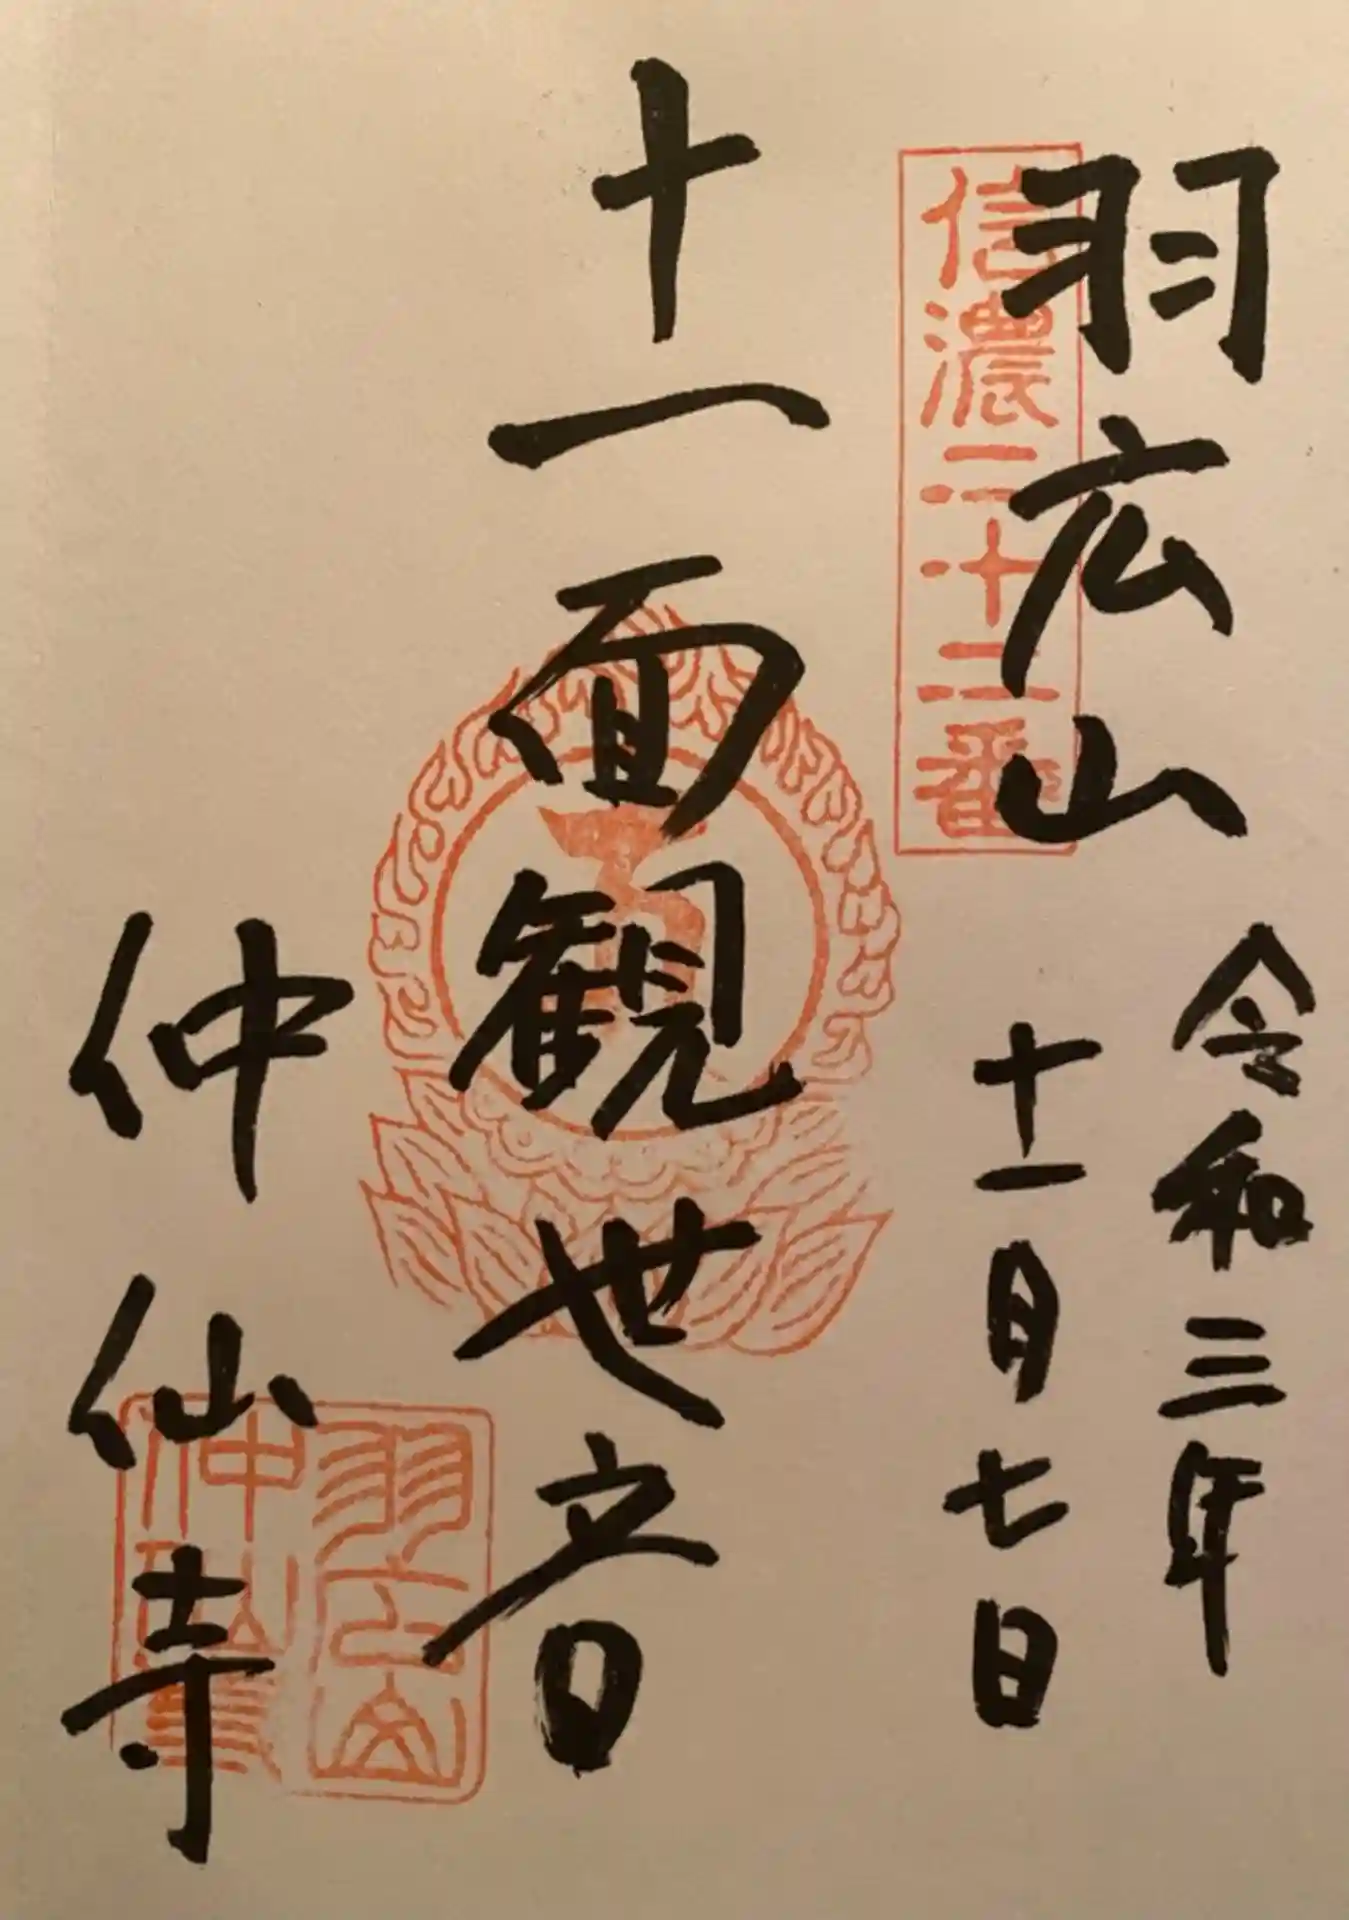 羽広山
信濃二十二番
令和三年
十一月七日
十一面観世音
仲仙寺
羽広山
仲仙